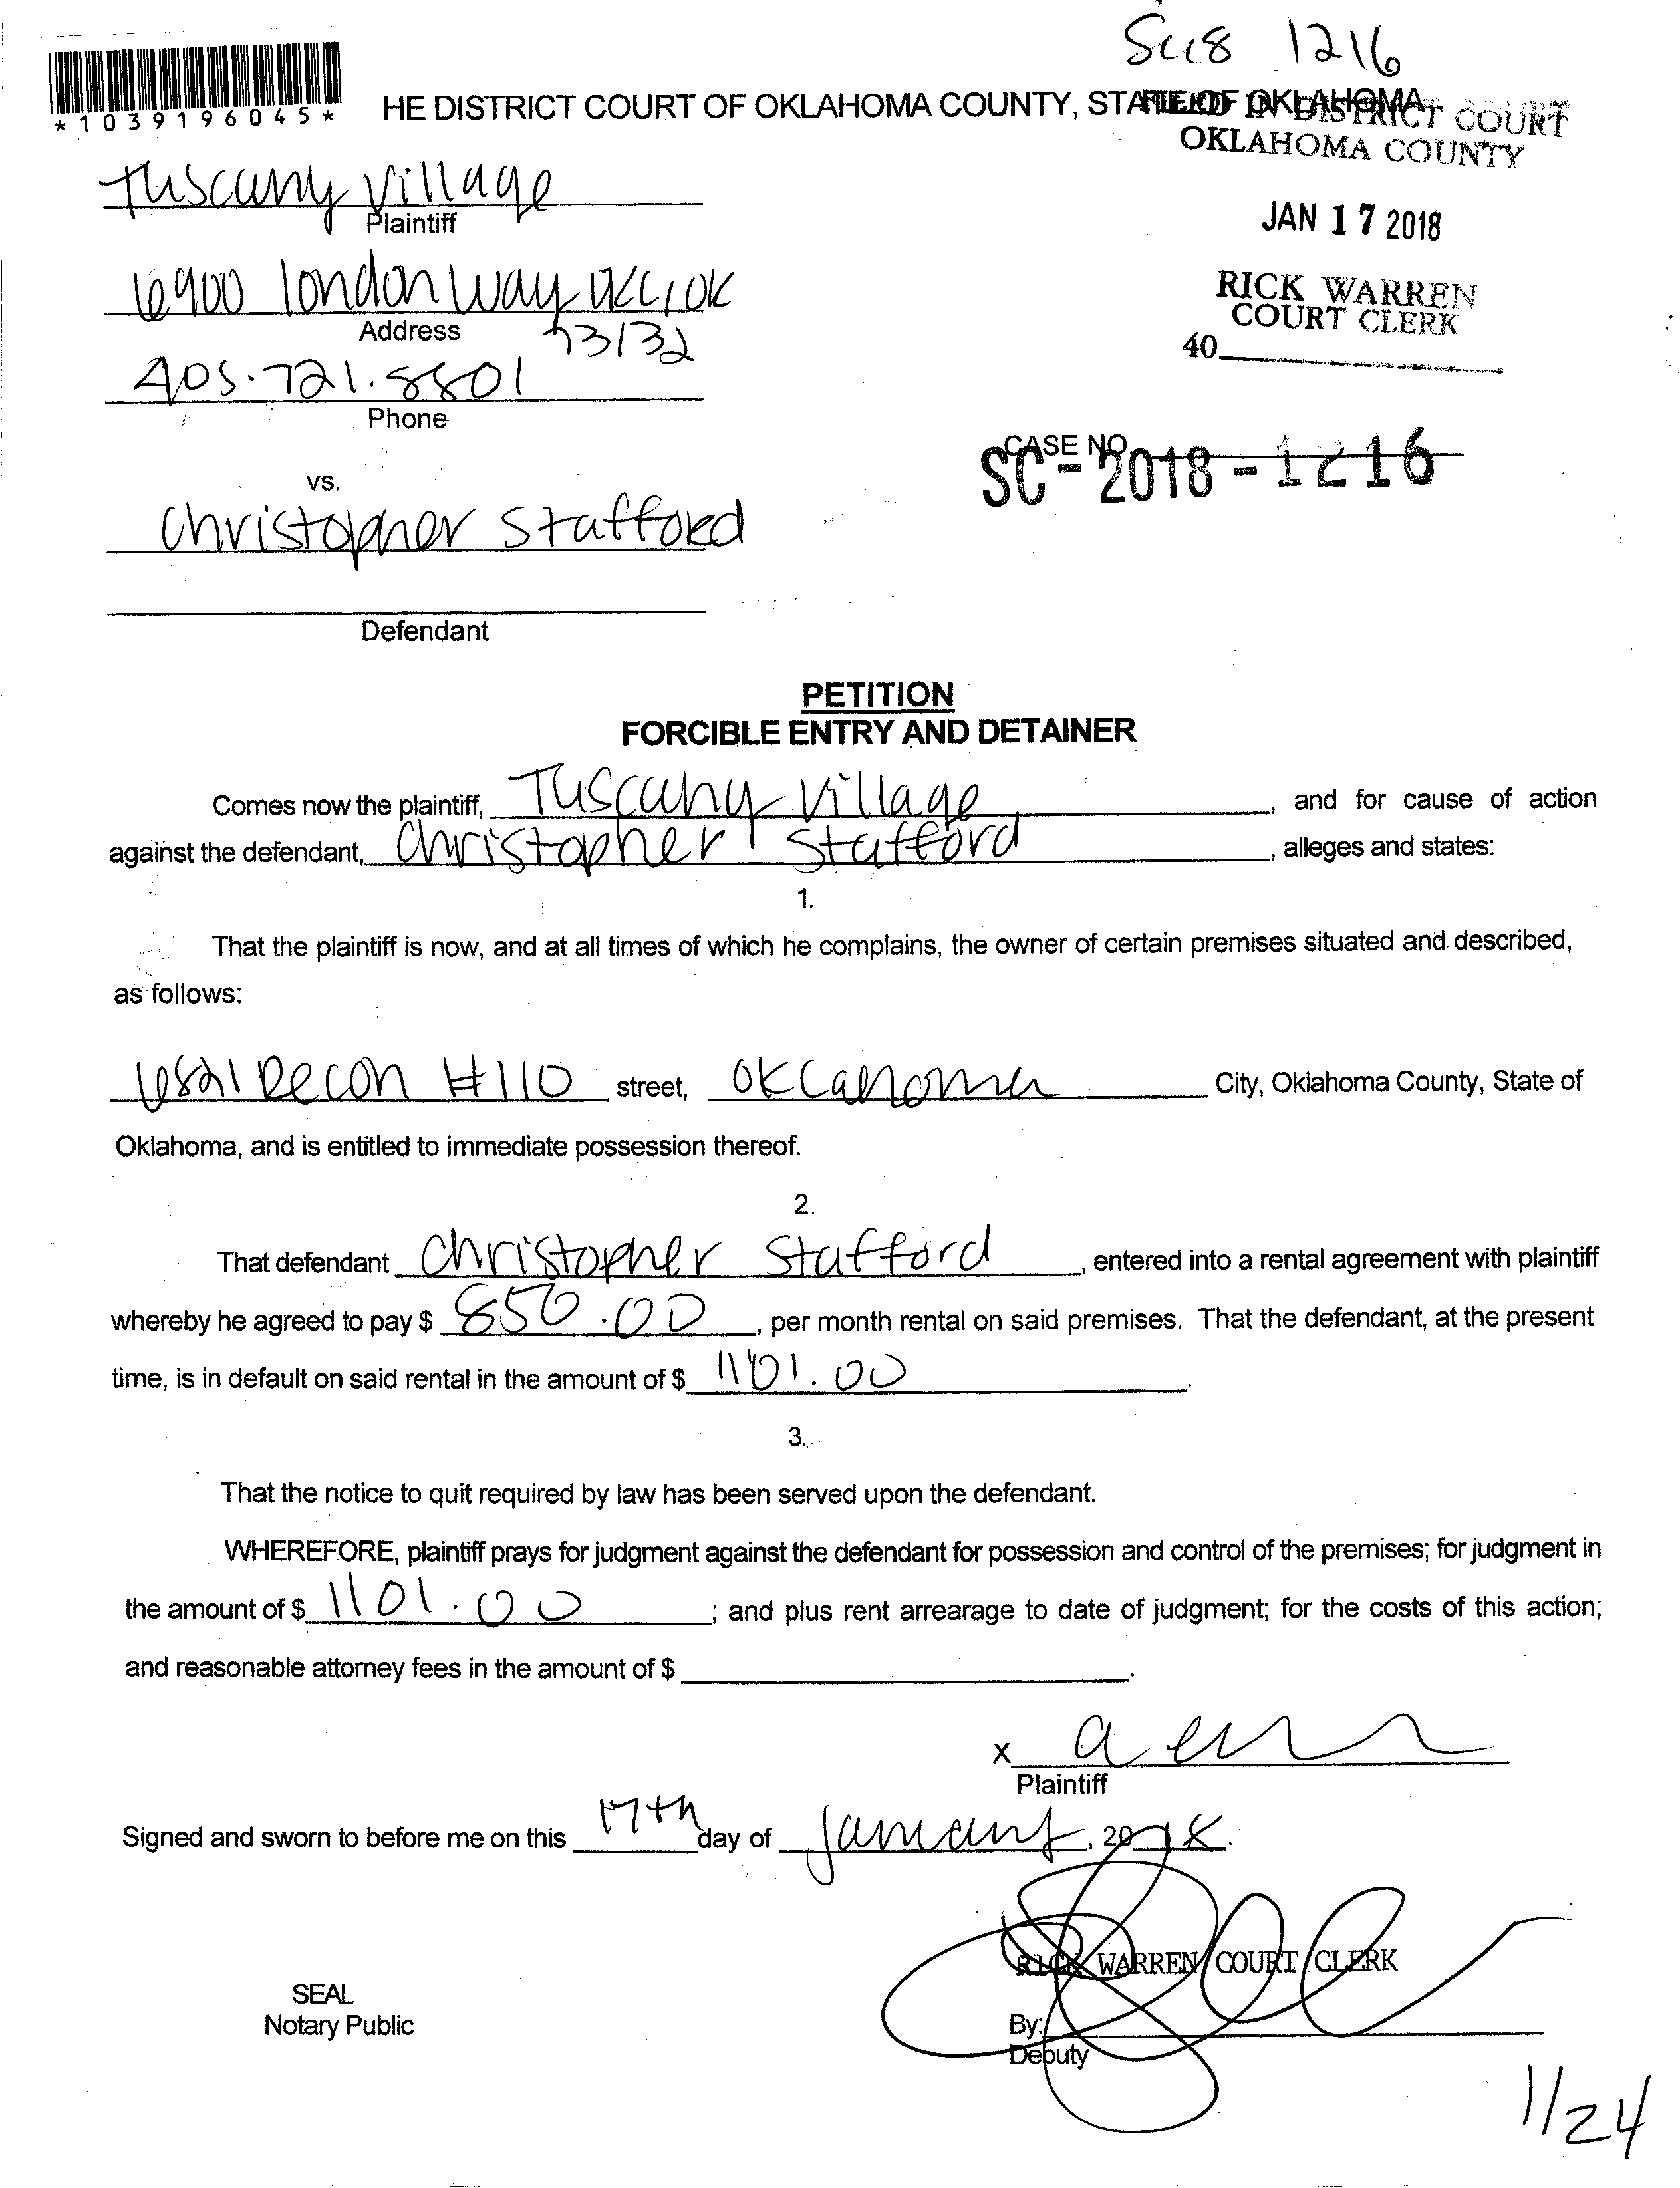 SC18 1216
*1039196045*
HE DISTRICT COURT OF OKLAHOMA COUNTY, STATE OF OKLAHOMA
FILED IN DISTRICT COURT
OKLAHOMA COUNTY
Tuscany Village
Plaintiff
JAN 17 2018
6900 london way OKC, OK
Address 73132
RICK WARREN
COURT CLERK
40
405.721.8801
Phone
CASE NO.
SC-2018-1216
vs.
Christopher Stafford
Defendant
PETITION
FORCIBLE ENTRY AND DETAINER
Comes now the plaintiff, Tuscany Village, and for cause of action
against the defendant, Christopher Stafford, alleges and states:
1.
That the plaintiff is now, and at all times of which he complains, the owner of certain premises situated and described,
as follows:
6821 Decon #110 street, Oklahoma City, Oklahoma County, State of
Oklahoma, and is entitled to immediate possession thereof.
2.
That defendant Christopher Stafford, entered into a rental agreement with plaintiff
whereby he agreed to pay $ 850.00, per month rental on said premises. That the defendant, at the present
time, is in default on said rental in the amount of $ 1101.00.
3.
That the notice to quit required by law has been served upon the defendant.
WHEREFORE, plaintiff prays for judgment against the defendant for possession and control of the premises; for judgment in
the amount of $ 1101.00; and plus rent arrearage to date of judgment; for the costs of this action;
and reasonable attorney fees in the amount of $ .
X
Plaintiff
Signed and sworn to before me on this 17th day of January, 2018.
RICK WARREN COURT CLERK
SEAL
Notary Public
By:
Deputy
1/24